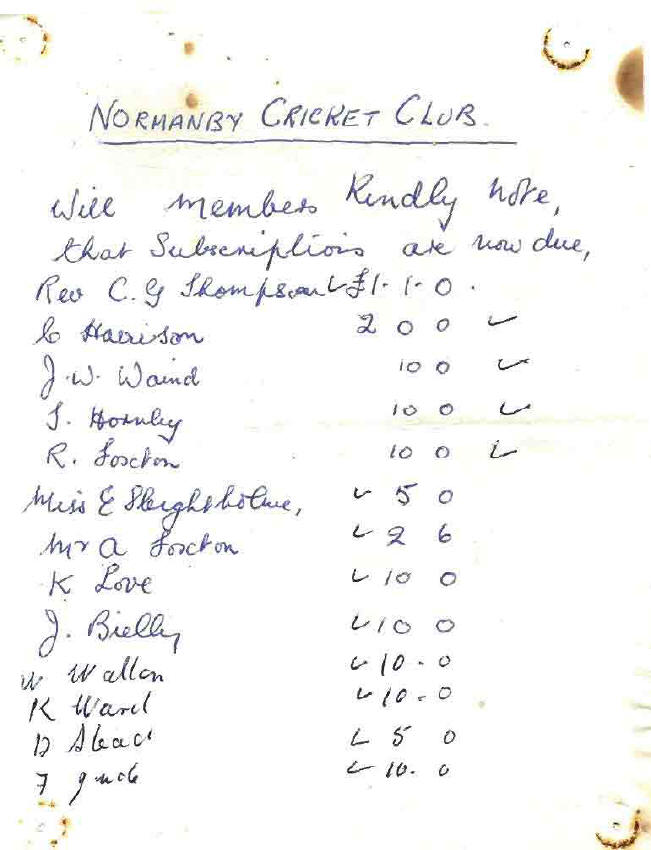 NORMANBY CRICKET CLUB.
Will members Kindly Note,
that Subscriptions are now due,
Rev C. G Thompson ✓ £1-1-0.
C Harrison 2 0 0 ✓
J. W. Waind 10 0 ✓
T. Hornby 10 0 ✓
R. Foxton 10 0 ✓
Miss E Sleightholme, ✓ 5 0
Mr A Foxton ✓ 2 6
K Love ✓ 10 0
J. Bielby ✓ 10 0
W Walton ✓ 10 - 0
K Ward ✓ 10 - 0
D ✓ 5 0
F ✓ 10 - 0